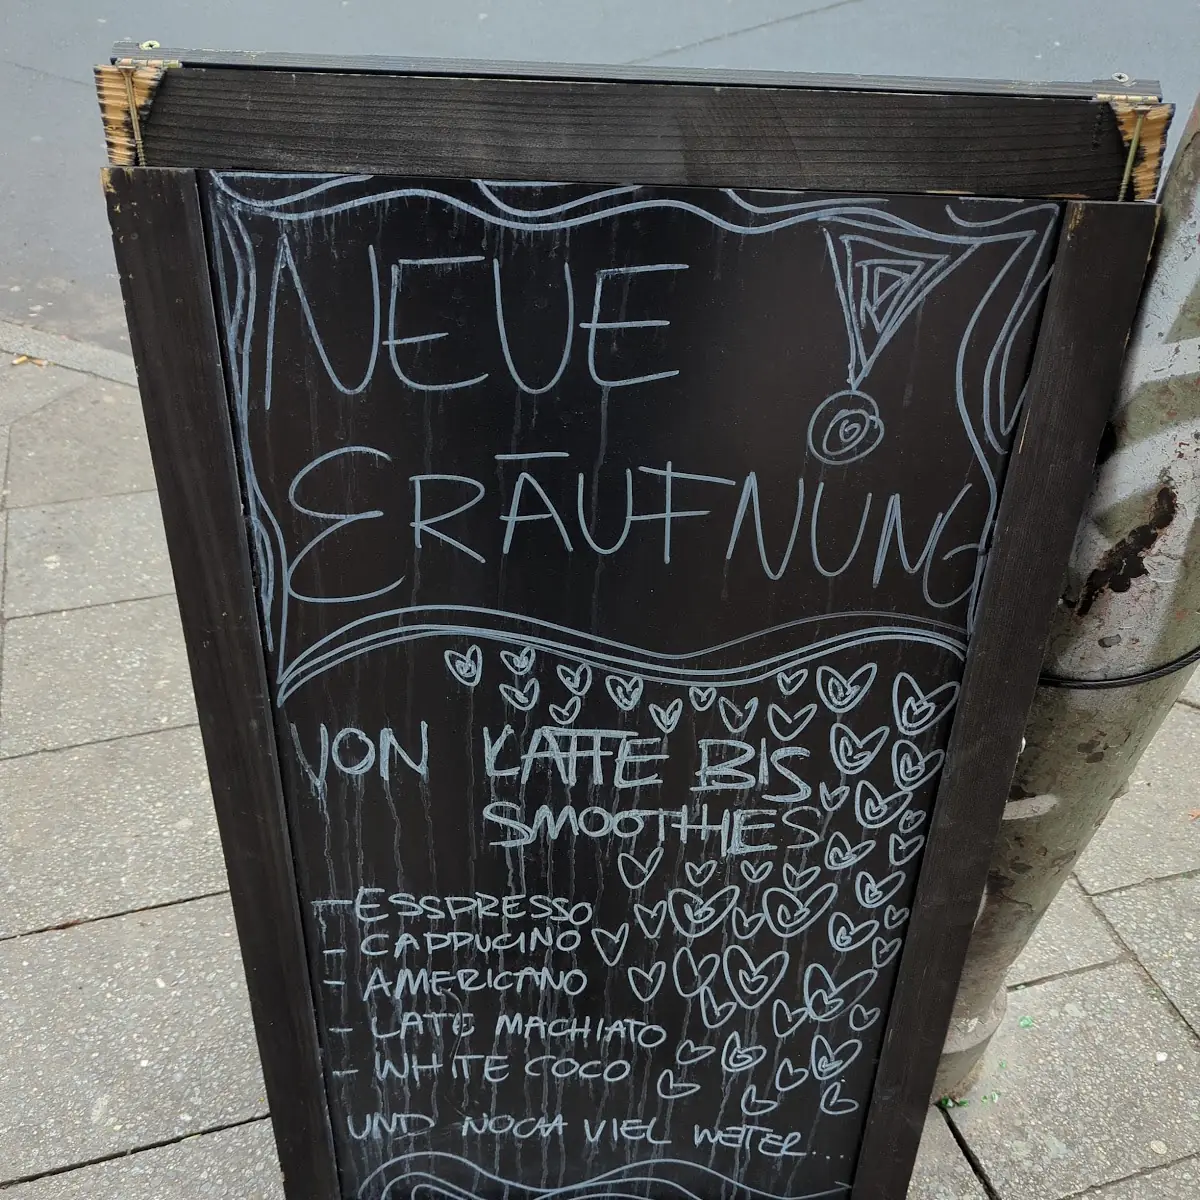 NEUE
ERĀUFNUNG
VON LATTE BIS
SMOOTHIES
- ESSPRESSO
- CAPPUCINO
- AMERICANO
- LATE MACHIATO
- WHITE COCO
UND NOCH VIEL WEITER...